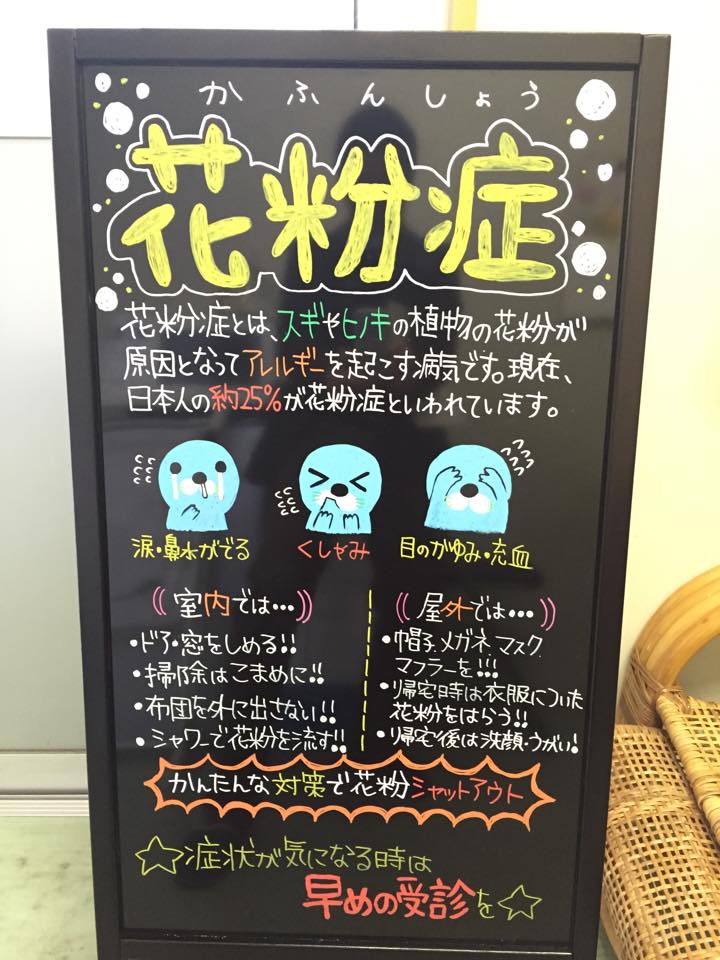 かふんしょう
花粉症
花粉症とは、スギやヒノキの植物の花粉が
原因となってアレルギーを起こす病気です。現在、
日本人の約25%が花粉症といわれています。
涙・鼻水がでる
くしゃみ
目のかゆみ・充血
室内では…
・ドア・窓をしめる!!
・掃除はこまめに!!
・布団を外に出さない!!
・シャワーで花粉を流す!!
屋外では…
・帽子、メガネ、マスク、
マフラーを!!!
・帰宅時は衣服についた
花粉をはらう!!
・帰宅後は洗顔・うがい!
かんたんな対策で花粉シャットアウト
☆症状が気になる時は
早めの受診を☆